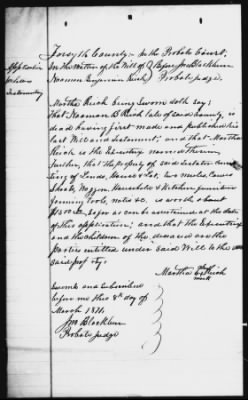 Forsyth County:- In the Probate Court.
Application
Letters
Testamentary
In the Matter of the Will of } Before Jno Blackburn
Neaman Benjamin Rich } Probate Judge.
Martha Rich being sworn doth say;
That Neaman B Rich late of said county, is
dead having first made and published his
last Will and testament; and that Martha
Rich is the Executrix named therein
Further, that the property of said testator consis
ting of Lands, House & Lot, two mules, Cows
Shoats, Waggon, Household & Kitchen furniture
Farming Tools, notes &c. is worth about
so far as can be ascertained at the date
of this application; and that the Executrix
and the children of the deceased are the
Parties entitled under said Will to the
said property.
Martha her Rich
mark
Sworn to and subscribed
before me this 8th day of
March 1871.
Jno Blackburn
Probate Judge